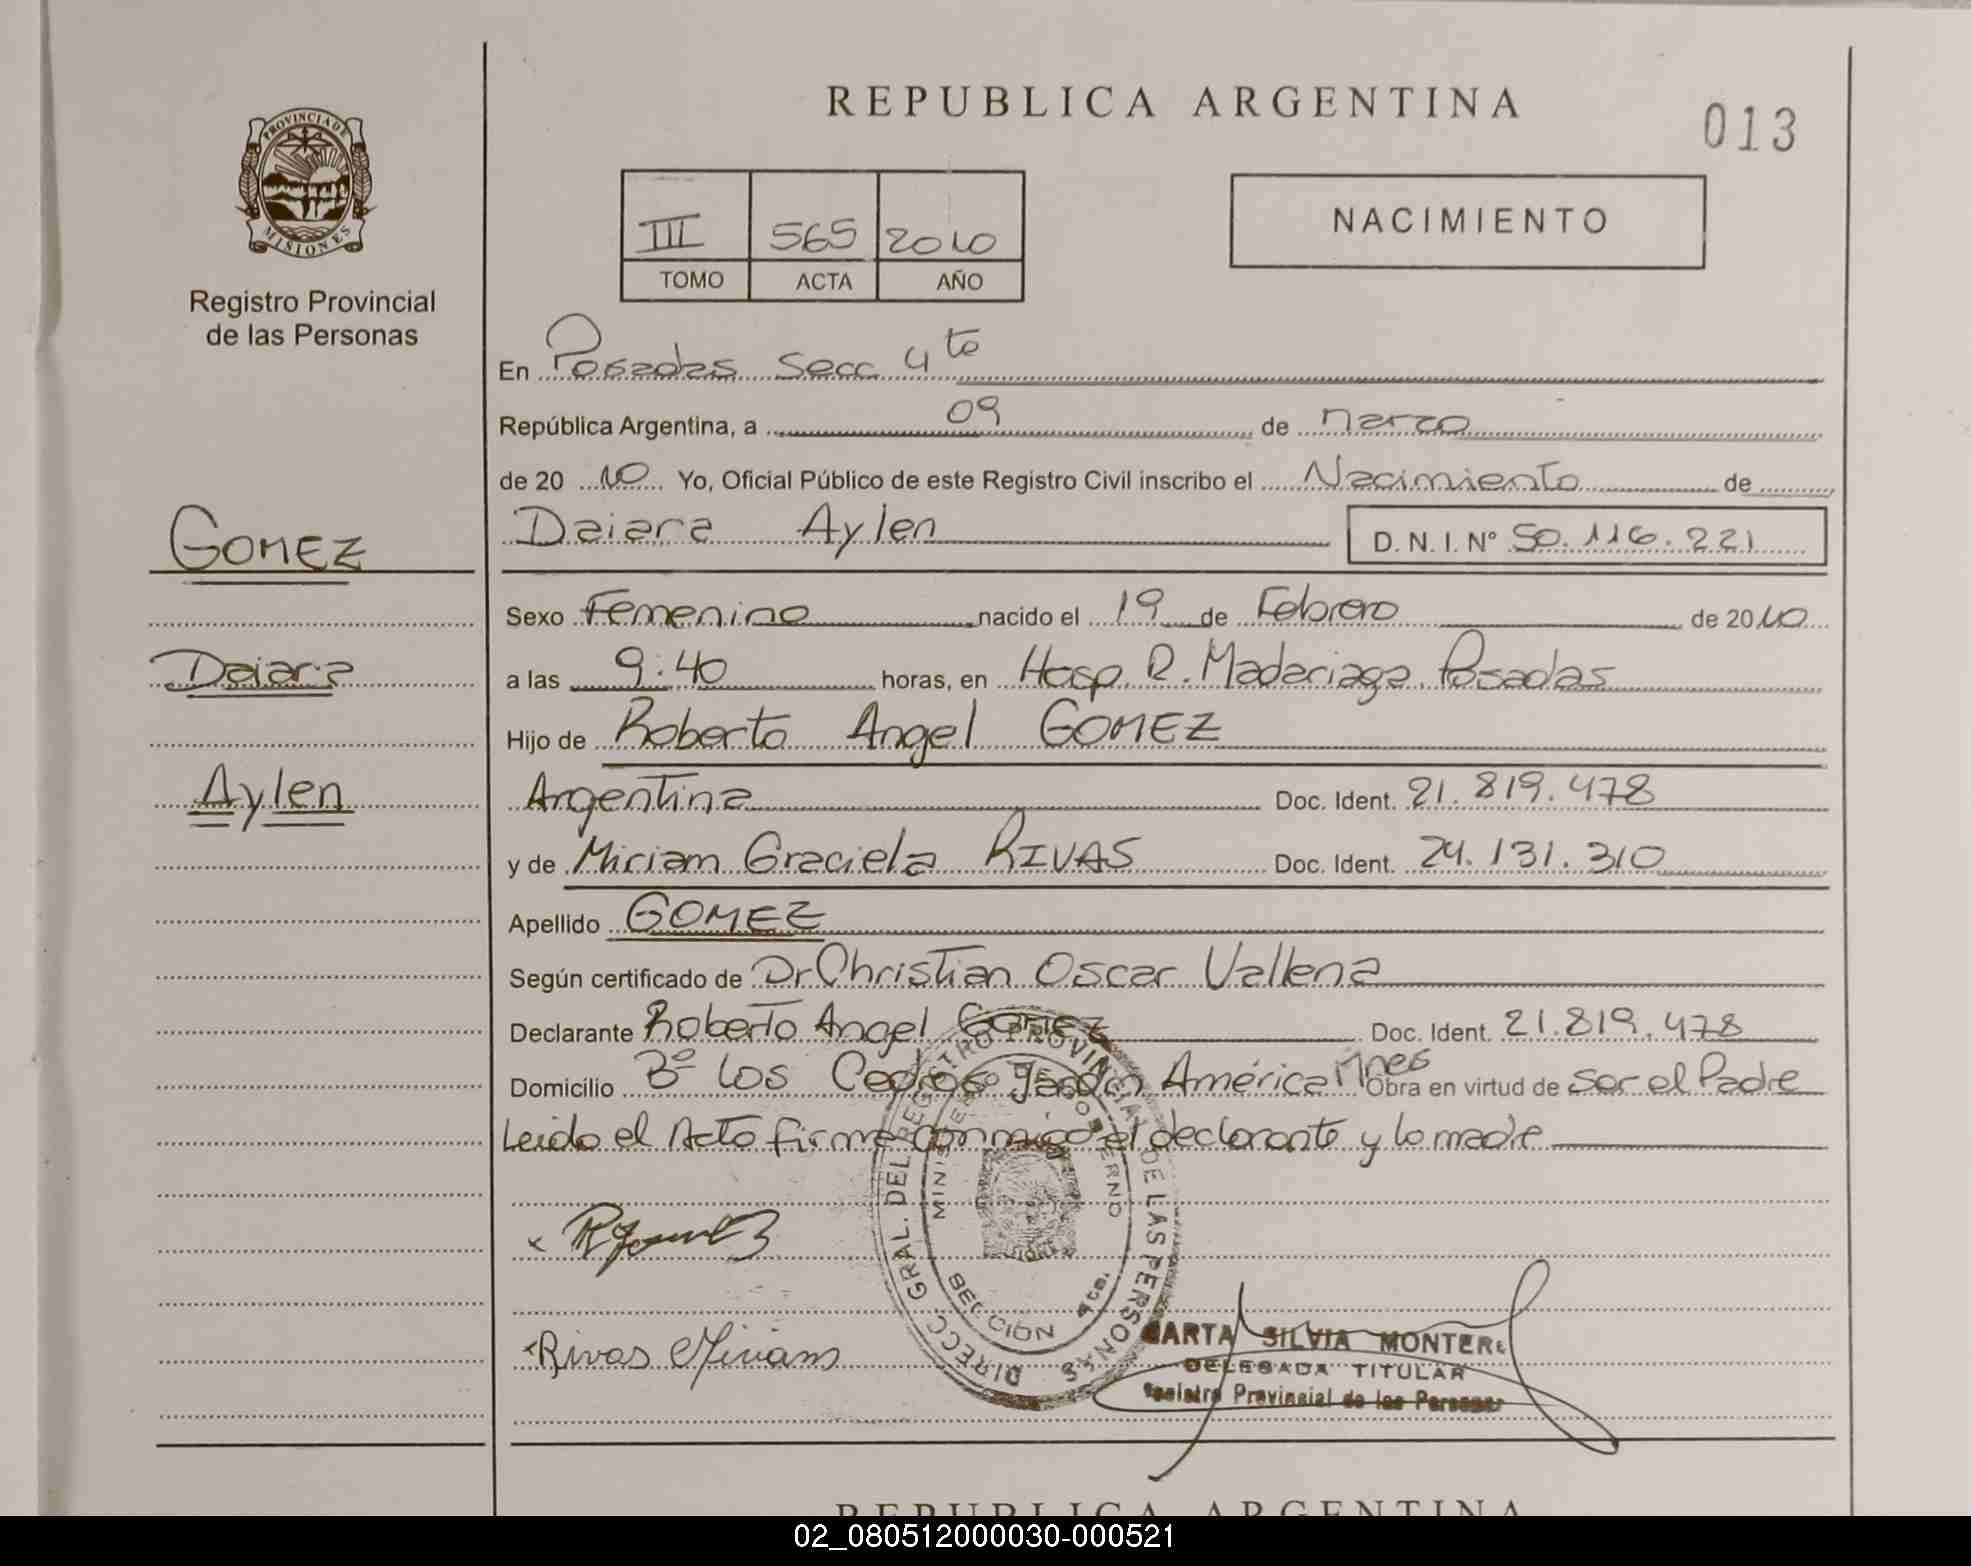 REPUBLICA ARGENTINA
013
PROVINCIA DE
MISIONES
Registro Provincial
de las Personas
III 565 2010
TOMO ACTA AÑO
NACIMIENTO
GOMEZ
Daiara
Aylen
En Posadas Secc 4ta
República Argentina, a 09 de Marzo
de 20 10 Yo, Oficial Público de este Registro Civil inscribo el Nacimiento de
Daiara Aylen D.N.I. N° 50.116.221
Sexo Femenino nacido el 19 de Febrero de 2010
a las 9:40 horas, en Hosp. R. Madariaga. Posadas
Hijo de Roberto Angel GOMEZ
Argentina Doc. Ident. 21.819.478
y de Miriam Graciela RIVAS Doc. Ident. 24.131.310
Apellido GOMEZ
Según certificado de Dr Christian Oscar Vallena
Declarante Roberto Angel Gomez Doc. Ident. 21.819.478
Domicilio Bº Los Cedros Jardin América Mnes Obra en virtud de ser el Padre
Leido el Acta firma conmigo el declarante y la madre
DIRECC. GRAL. DEL REGISTRO PROVINCIAL DE LAS PERSONAS
MINISTERIO DE GOBIERNO
SECCION 4ta.
Rivas Miriam
MARTA SILVIA MONTERO
DELEGADA TITULAR
Registro Provincial de las Personas
REPUBLICA ARGENTINA
02_080512000030-000521